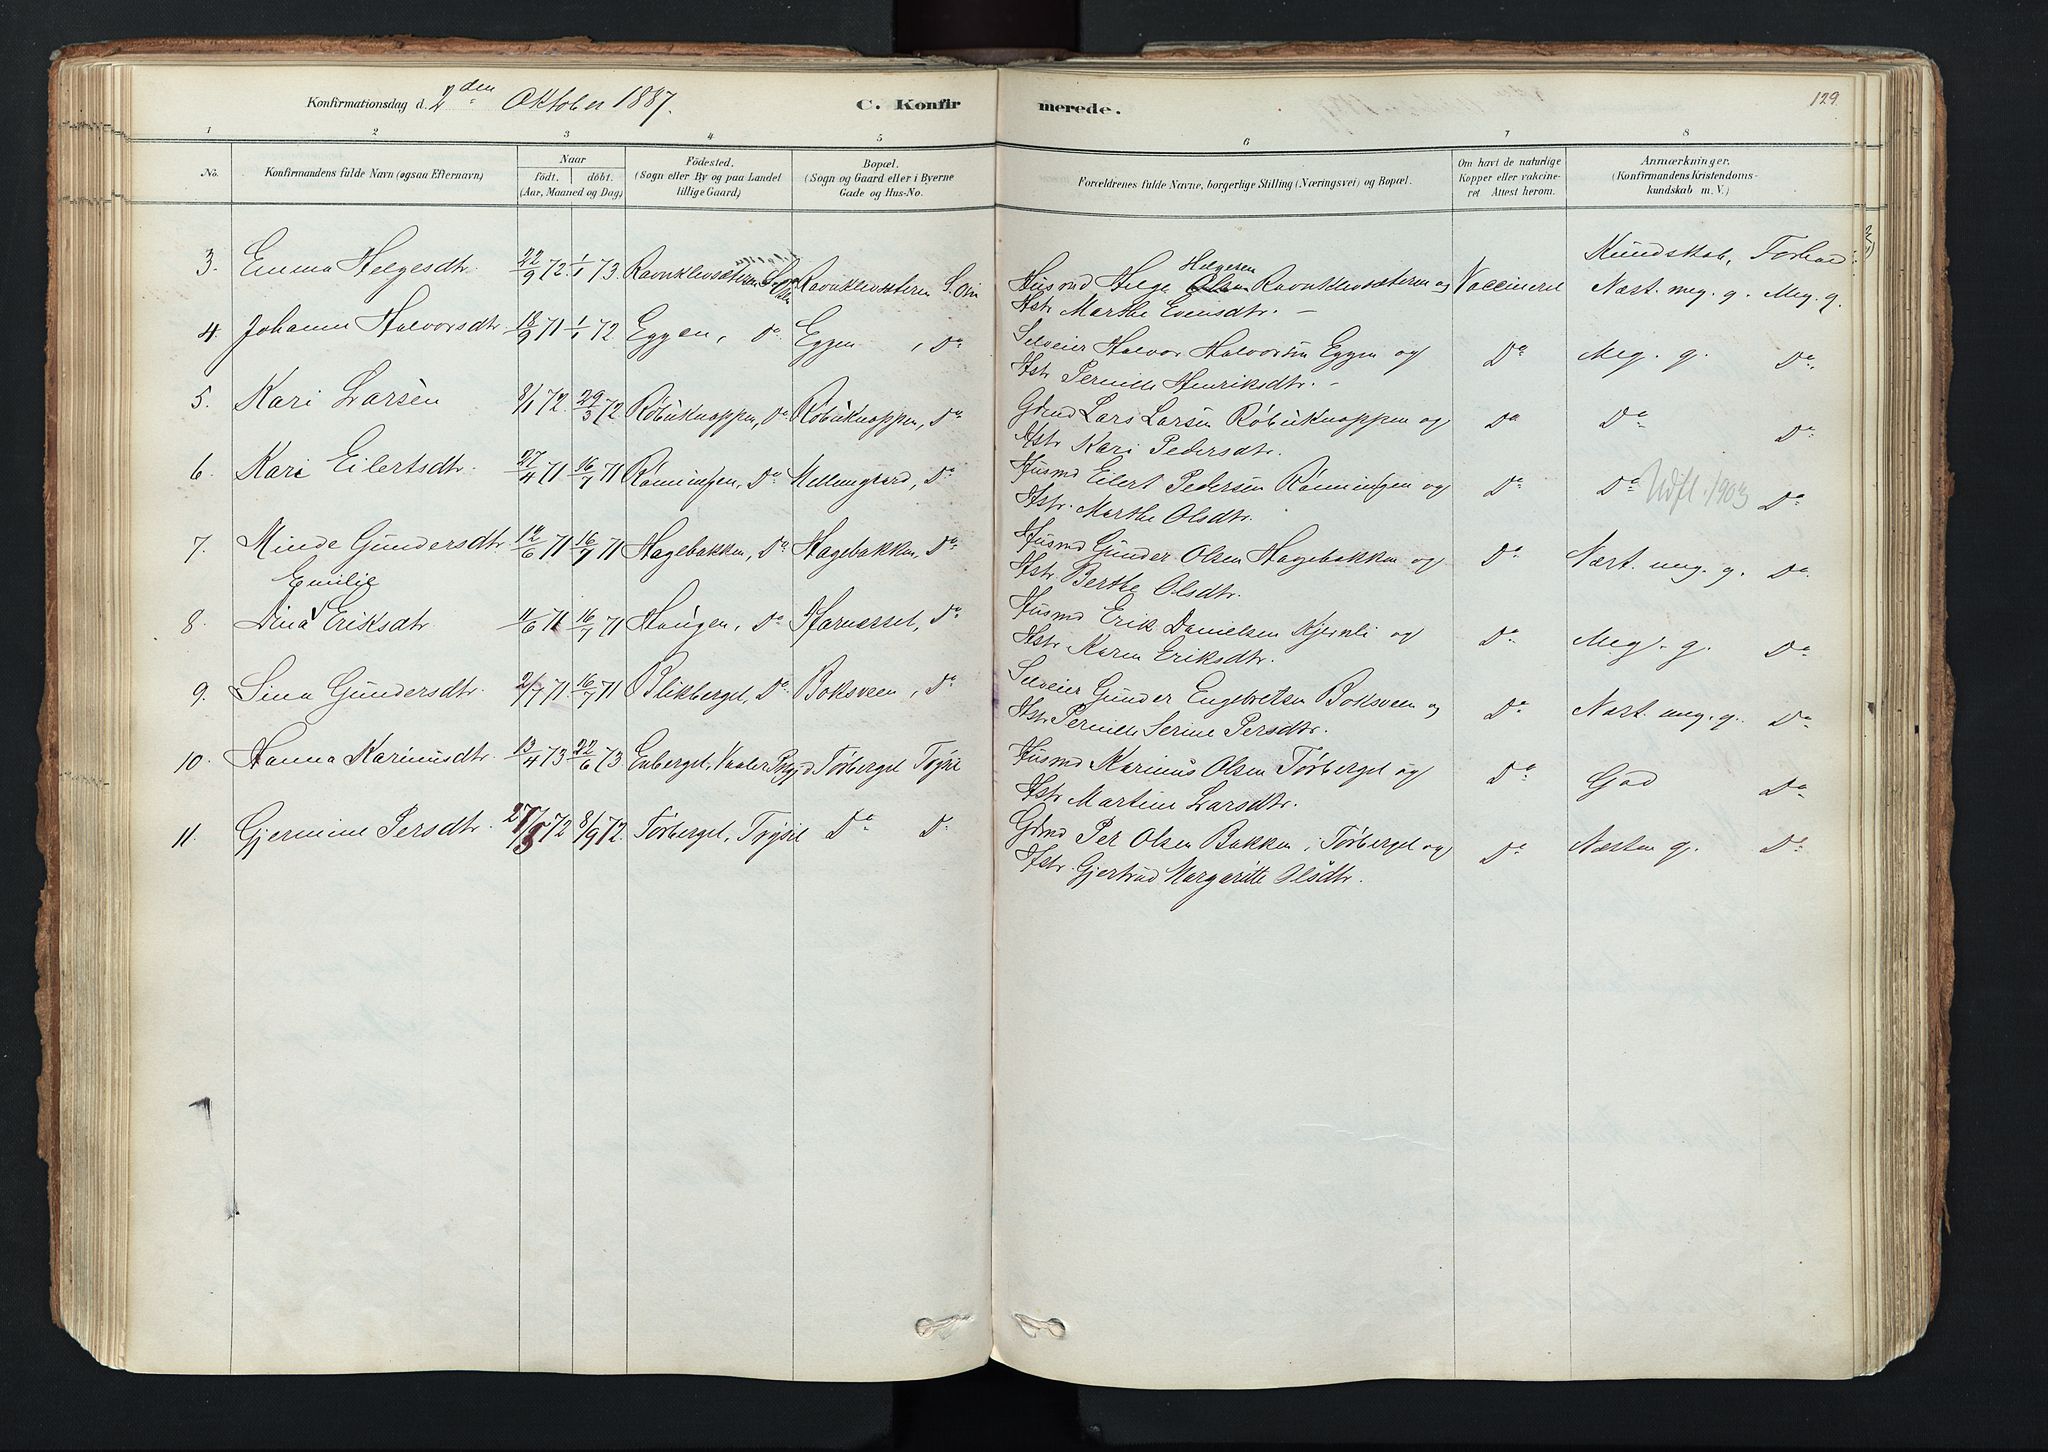 Konfirmationsdag d. 2den Oktober 1887. C. Konfirmerede. 129.
1 2 3 4 5 6 7 8
No. Konfirmandens fulde Navn (ogsaa Efternavn) Naar Födt. döbt. (Aar, Maaned og Dag) Födested. (Sogn eller By og paa Landet tillige Gaard) Bopæl. (Sogn og Gaard eller i Byerne Gade og Hus-No. Forældrenes fulde Navne, borgerlige Stilling (Næringsvei) og Bopæl. Om havt de naturlige Kopper eller vakcineret Attest herom. Anmærkninger. (Konfirmandens Kristendomskundskab m. V.)
Kundskab, Forhold
3. Emma Helgesdtr. 22/9 72. 1/1 73. Ravnklevsæteren Ravnklevsæteren S. Osen Husmd Helge Helgesen Olsen Ravnklevsæteren og Vaccineret Næst. meg. g. Meg. g.
Hstr Marthe Evensdtr. –
4. Johanne Halvorsdtr. 18/9 71 1/1 72. Eggen, Do Eggen, Do Selveier Halvor Halvorsen Eggen og Do Meg. g. Do
Hstr Pernille Henriksdtr. –
5. Kari Larsen 8/1 72. 29/3 72. Røbuknappen, Do Røbuknappen, Do Gbrmd Lars Larsen Røbuknappen og Do Do Do
Hstr Kari Pedersdtr.
6. Kari Eilertsdtr. 27/4 71 16/7 71 Rønningen, Do Mellemgaard, Do Husmd Eilert Pedersen Rønningen og Do Do Udfl. 1903 Do
Hstr. Marthe Olsdtr.
7. Minde Gundersdtr 12/6 71 16/7 71 Hagebakken, Do Hagebakken, Do Husmd Gunder Olsen Hagebakken og Do Næst. meg. g. Do
Hstr Berthe Olsdtr.
Emilie
8. Dina Eriksdtr 11/6 71 16/7 71 Haugen, Do Harnæsset, Do Husmd Erik Danielsen Kjernli og Do Meg. g. Do
Hstr Karen Eriksdtr.
9. Lina Gundersdtr. 2/7 71 16/7 71 Blikberget, Do Boksveen, Do Selveier Gunder Engebretsen Boksveen og Do Næst. meg. g. Do
Hstr Pernille Serine Persdtr.
10. Hanna Karinusdtr. 13/4 73 22/6 73 Enberget, Vaaler Prgjd Tørberget Trysil Husmd Karinus Olsen Tørberget og Do God Do
Hstr Martine Larsdtr.
11. Gjermine Persdtr. 27/5 72 8/9 72. Tørberget, Trysil Do Do Gbrmd Per Olsen Bakken i Tørberget og Do Næsten g. Do
Hstr. Gjertrud Margaritte Olsdtr.